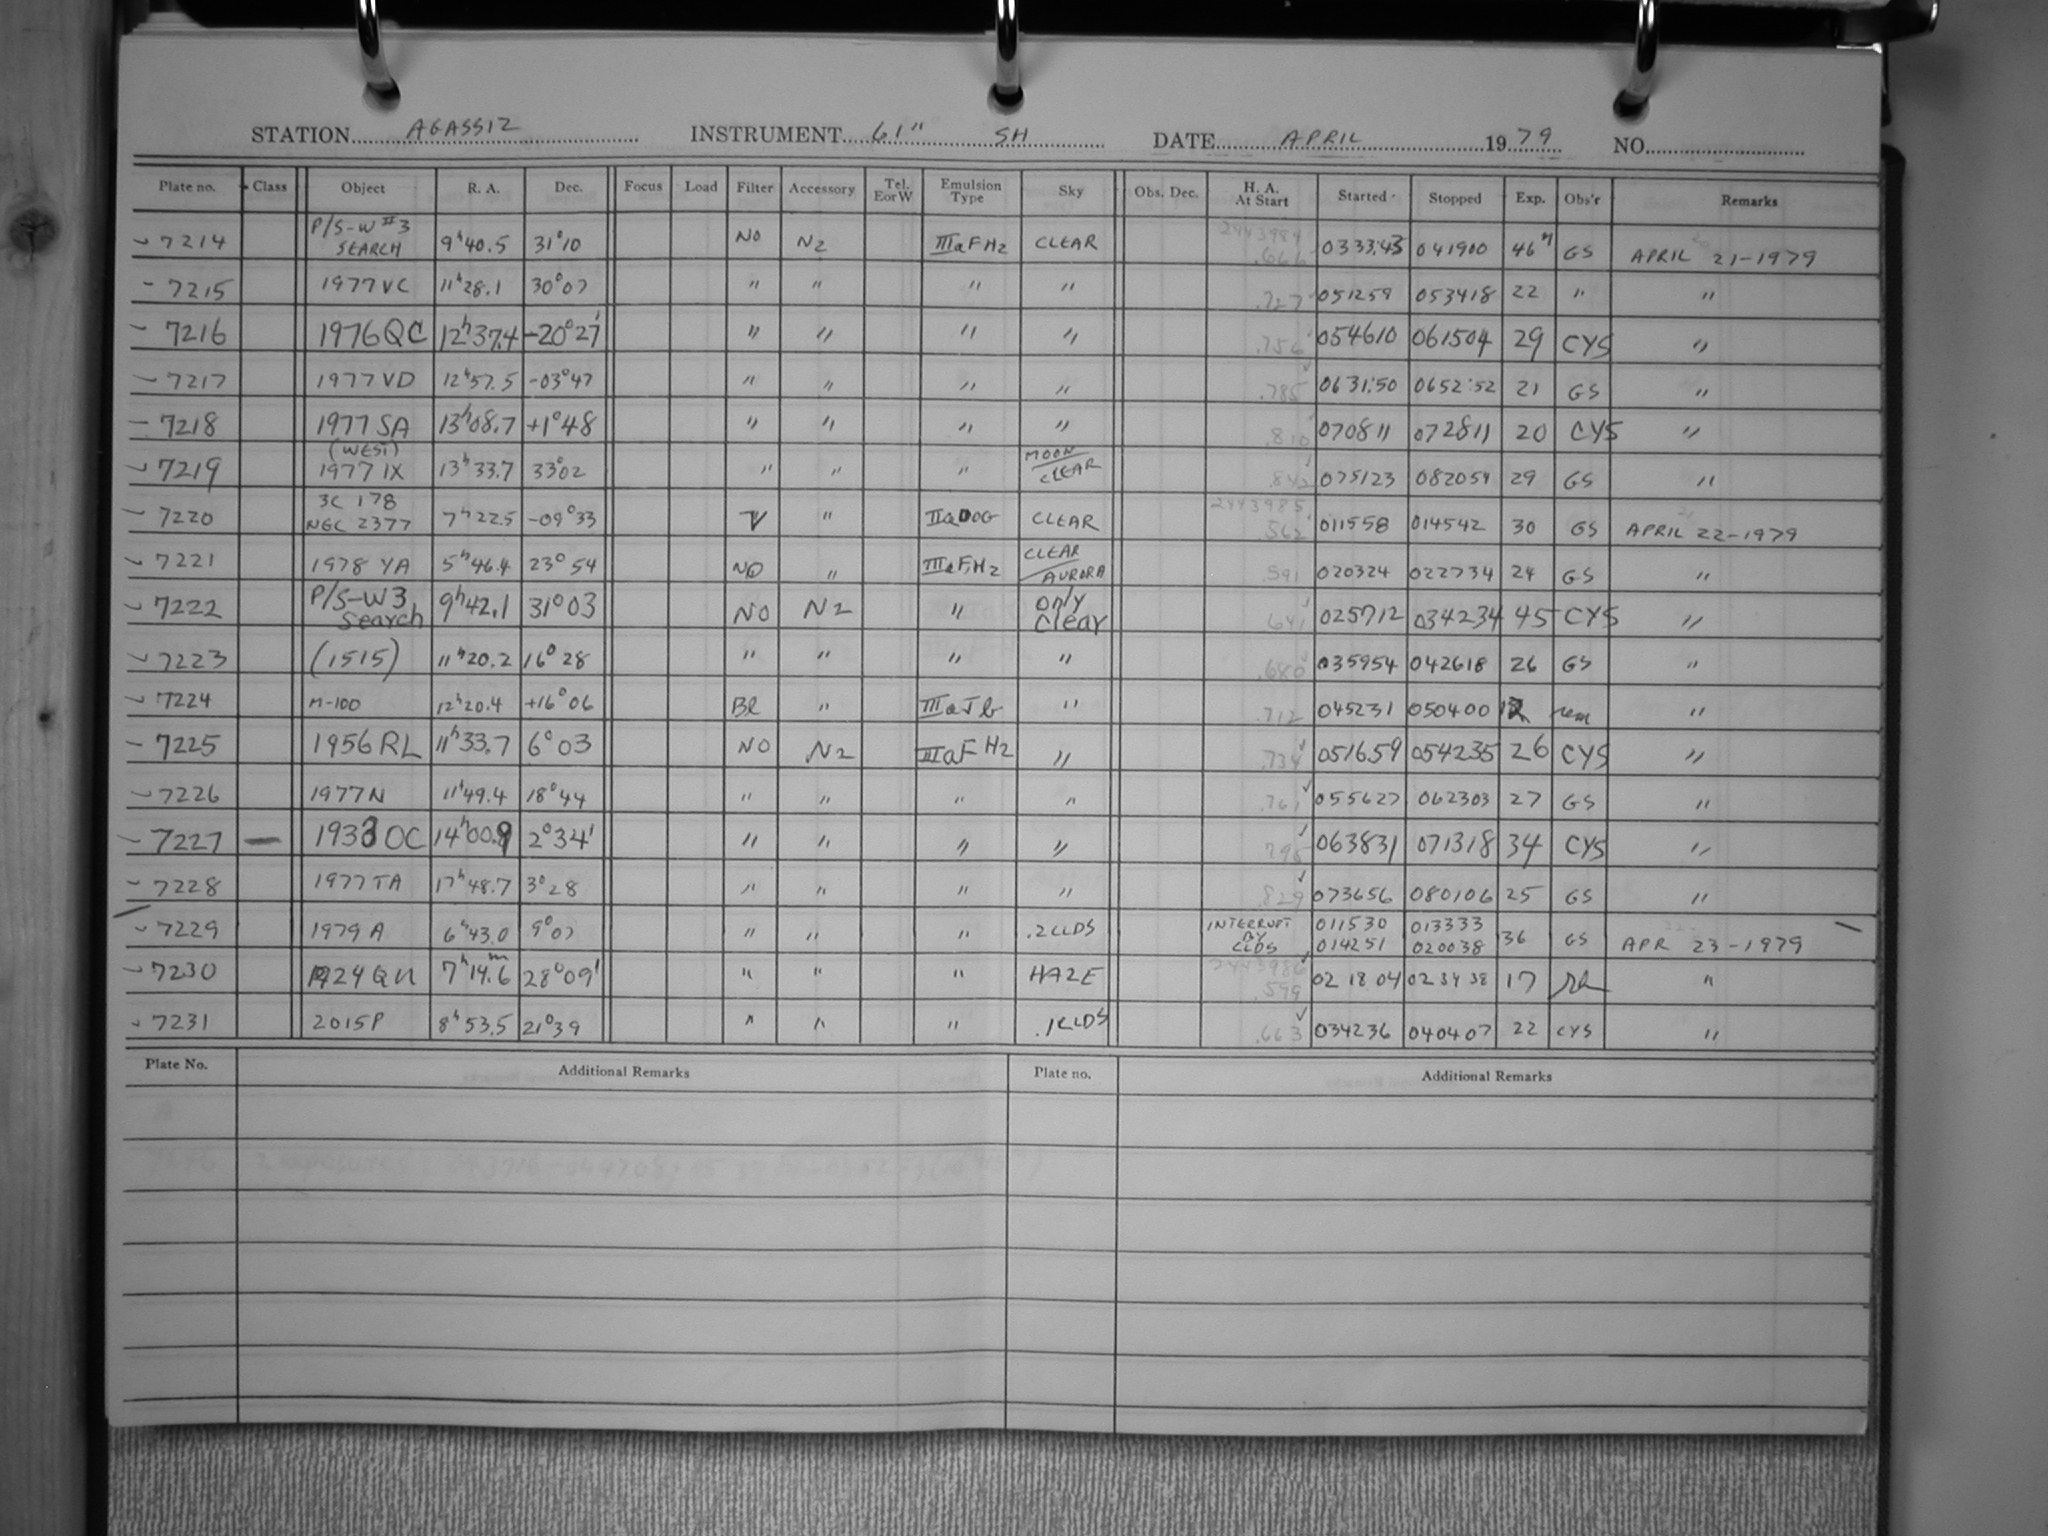 STATION AGASSIZ INSTRUMENT 61" SH DATE APRIL 1979 NO.
Plate no. Class Object R. A. Dec. Focus Load Filter Accessory Tel. E or W Emulsion Type Sky Obs. Dec. H. A. At Start Started Stopped Exp. Obs'r Remarks
7214 P/S-W #3 SEARCH 9h40.5 31°10 NO N2 IIIaFH2 CLEAR 2443984 .666 0333:43 041900 46m GS APRIL 21-1979
7215 1977 VC 11h28.1 30°07 " " " " .727 051259 053418 22 " "
7216 1976 QC 12h37.4 -20°27' " " " " .756 054610 061504 29 CYS "
7217 1977 VD 12h57.5 -03°47 " " " " .785 0631:50 0652:52 21 GS "
7218 1977 SA 13h08.7 +1°48 " " " " .810 070811 072811 20 CYS "
7219 (WEST) 1977 IX 13h33.7 33°02 " " " MOON/CLEAR .842 075123 082054 29 GS "
7220 3C 178 NGC 2377 7h22.5 -09°33 V " IIaDOG CLEAR 2443985 .562 011558 014542 30 GS APRIL 22-1979
7221 1978 YA 5h46.4 23°54 NO " IIIaFH2 CLEAR/AURORA .591 020324 022734 24 GS "
7222 P/S-W3 Search 9h42.1 31°03 NO N2 " only Clear .641 025712 034234 45 CYS "
7223 (1515) 11h20.2 16°28 " " " " .680 035954 042618 26 GS "
7224 M-100 12h20.4 +16°06 BL " IIIaJ " .712 045231 050400 12 rem "
7225 1956 RL 11h33.7 6°03 NO N2 IIIaFH2 " .734 051659 054235 26 CYS "
7226 1977 N 11h49.4 18°44 " " " " .761 055627 062303 27 GS "
7227 — 1933 OC 14h00.9 2°34' " " " " .795 063831 071318 34 CYS "
7228 1977 TA 17h48.7 3°28 " " " " .829 073656 080106 25 GS "
7229 1979 A 6h43.0 9°07 " " " .2 CLDS INTERRUPT BY CLDS 011530 013333 014251 020038 36 GS APR 23-1979
7230 1924 QN 7h14.6m 28°09' " " " HAZE 2443986 .599 02 18 04 02 34 38 17 "
7231 2015P 8h53.5 21°39 " " " .1 CLDS .663 034236 040407 22 CYS "
Plate No. Additional Remarks Plate no. Additional Remarks